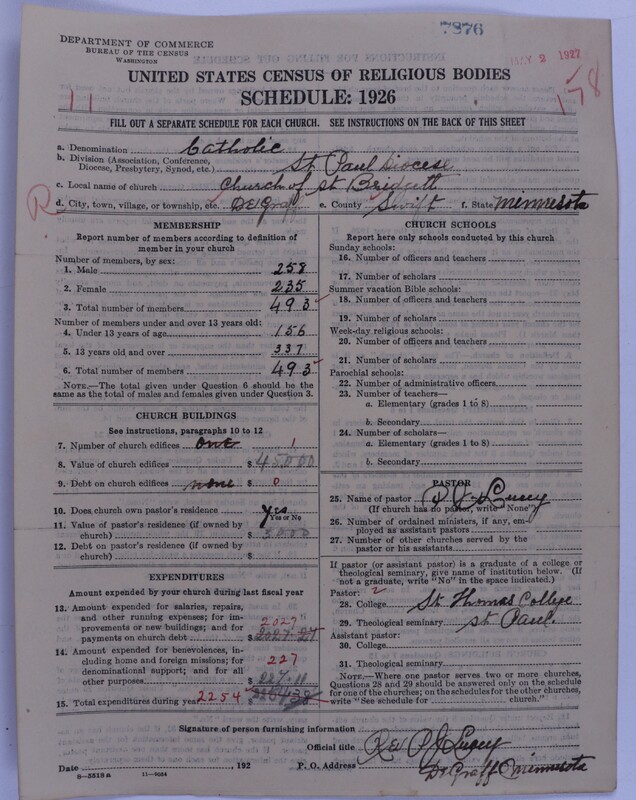 7876
DEPARTMENT OF COMMERCE
BUREAU OF THE CENSUS
WASHINGTON
MAY 2 1927
UNITED STATES CENSUS OF RELIGIOUS BODIES
SCHEDULE: 1926
11
178
FILL OUT A SEPARATE SCHEDULE FOR EACH CHURCH. SEE INSTRUCTIONS ON THE BACK OF THIS SHEET
a. Denomination Catholic
b. Division (Association, Conference, Diocese, Presbytery, Synod, etc.) St Paul Diocese
c. Local name of church Church of St Bridgett
R
d. City, town, village, or township, etc. De Graff e. County Swift f. State Minnesota
MEMBERSHIP
Report number of members according to definition of member in your church
Number of members, by sex:
1. Male 258
2. Female 235
3. Total number of members 493
Number of members under and over 13 years old:
4. Under 13 years of age 156
5. 13 years old and over 337
6. Total number of members 493
NOTE.—The total given under Question 6 should be
same as the total of males and females given under Question 3.
CHURCH BUILDINGS
See instructions, paragraphs 10 to 12
7. Number of church edifices one 1
8. Value of church edifices $ 45000
9. Debt on church edifices none $ 0
10. Does church own pastor's residence yes
Yes or No
11. Value of pastor's residence (if owned by
church) $ 5000
12. Debt on pastor's residence (if owned by
church) $
EXPENDITURES
Amount expended by your church during last fiscal year
13. Amount expended for salaries, repairs,
and other running expenses; for im-
provements or new buildings; and for 2027
payments on church debt $ 2027.27
14. Amount expended for benevolences, in-
cluding home and foreign missions; for 227
denominational support; and for all
other purposes $ 227.11
15. Total expenditures during year 2254 $
CHURCH SCHOOLS
Report here only schools conducted by this church
Sunday schools:
16. Number of officers and teachers
17. Number of scholars
Summer vacation Bible schools:
18. Number of officers and teachers
19. Number of scholars
Week-day religious schools:
20. Number of officers and teachers
21. Number of scholars
Parochial schools:
22. Number of administrative officers
23. Number of teachers—
a. Elementary (grades 1 to 8)
b. Secondary
24. Number of scholars—
a. Elementary (grades 1 to 8)
b. Secondary
PASTOR
25. Name of pastor P J Lucey
(If church has no pastor, write "None")
26. Number of ordained ministers, if any, em-
ployed as assistant pastors
27. Number of other churches served by the
pastor or his assistants
If pastor (or assistant pastor) is a graduate of a college or
theological seminary, give name of institution below. (If
not a graduate, write "No" in the space indicated.)
Pastor: 2
28. College St Thomas College
29. Theological seminary St Paul.
Assistant pastor:
30. College
31. Theological seminary
NOTE.—Where one pastor serves two or more churches,
Questions 28 and 29 should be answered only on the schedule
for one of the churches; on the schedules for the other churches,
write "See schedule for church."
Signature of person furnishing information
Official title Rev P J Lucey
Date , 192 P. O. Address De Graff Minnesota
8—5518 a 11—9024